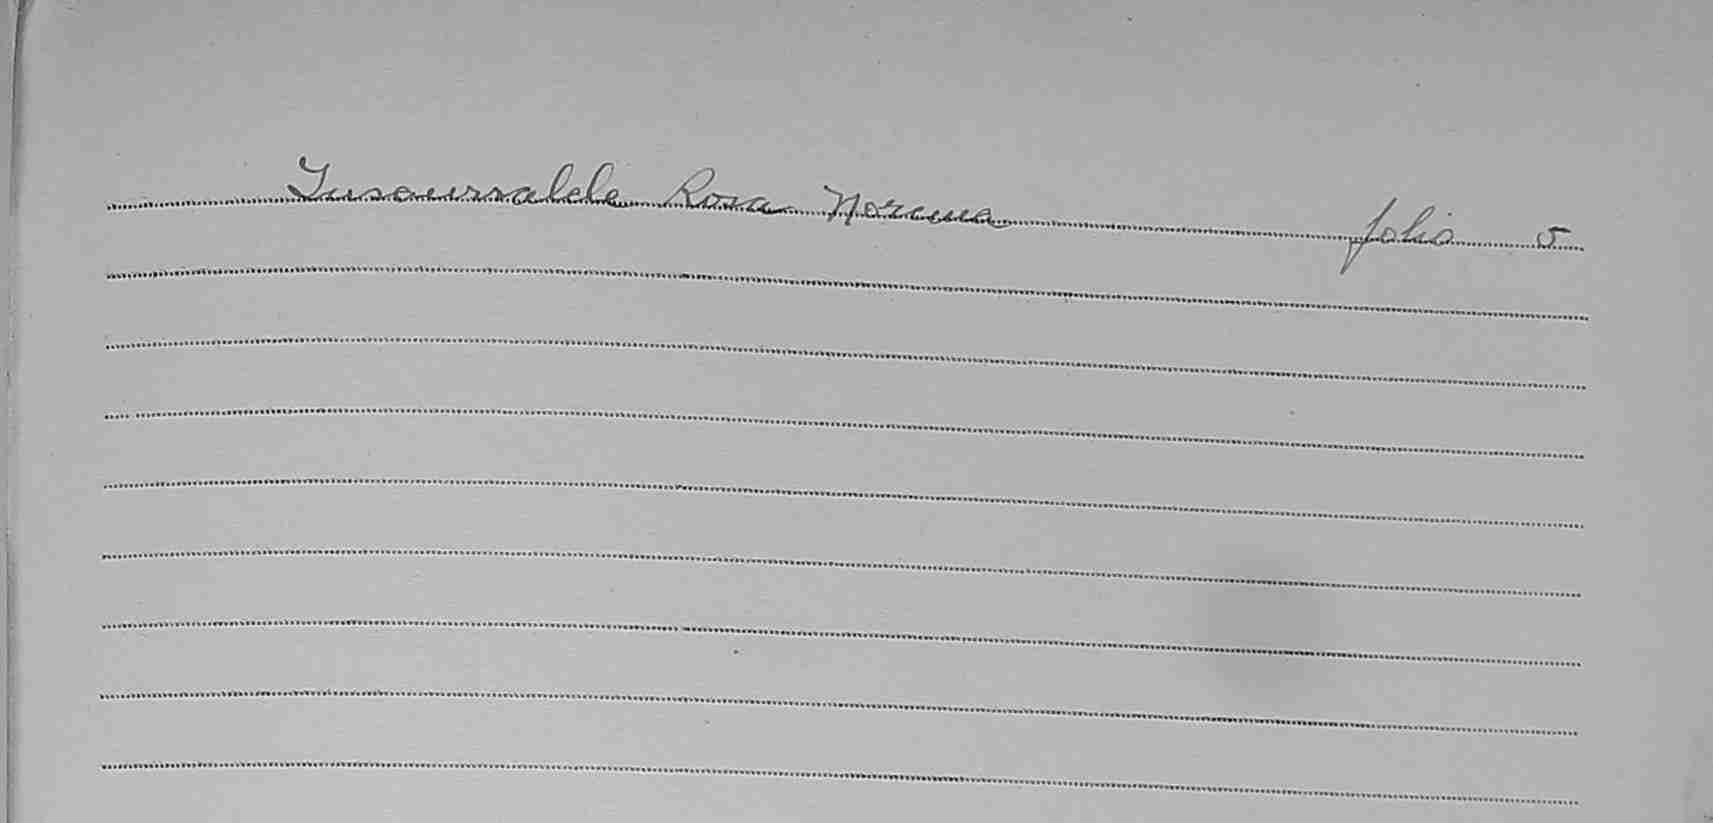 Insaurralde Rosa Norma folio 5